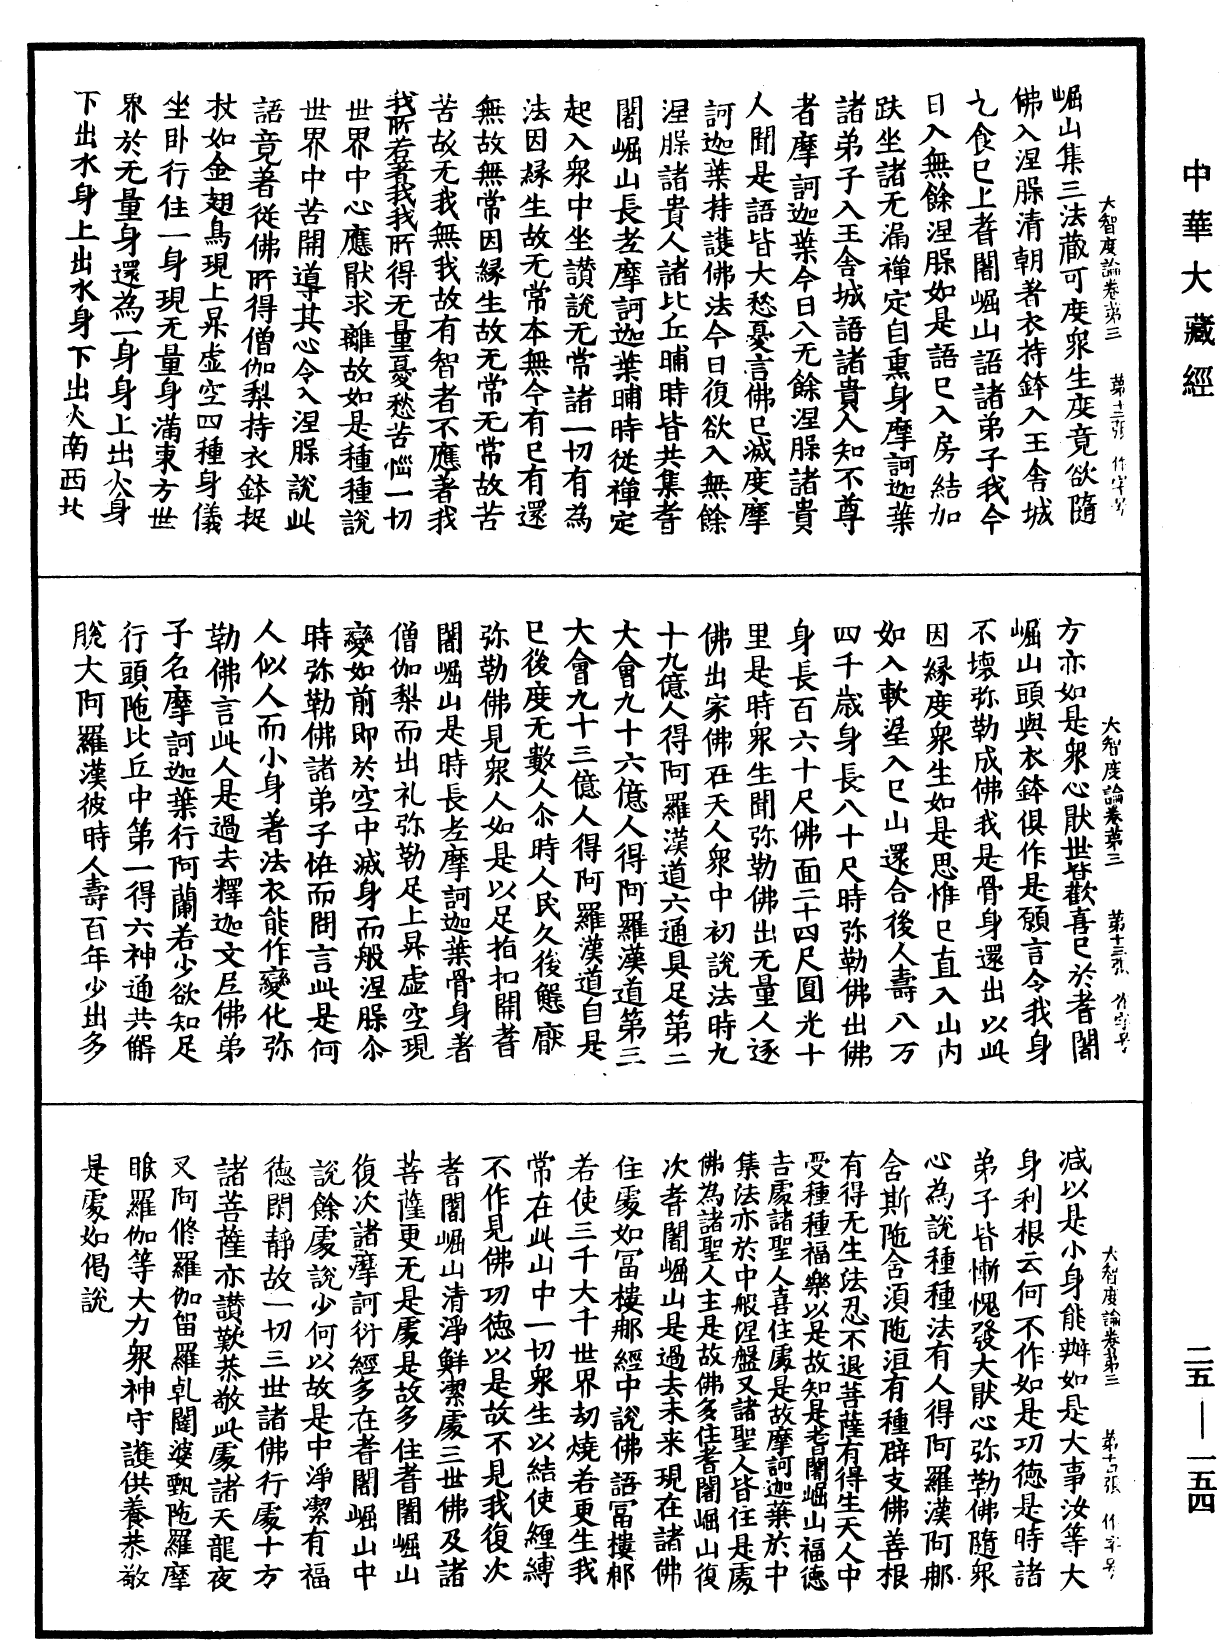 中華大藏經
大智度論卷第三　第十二張　作字号
崛山集三法藏可度衆生度竟欲隨
佛入涅槃清朝著衣持鉢入王舍城
乞食已上耆闍崛山語諸弟子我今
日入無餘涅槃如是語已入房結加
趺坐諸无漏禪定自熏身摩訶迦葉
諸弟子入王舍城語諸貴人知不尊
者摩訶迦葉今日入无餘涅槃諸貴
人聞是語皆大愁憂言佛已滅度摩
訶迦葉持護佛法今日復欲入無餘
涅槃諸貴人諸比丘晡時皆共集耆
闍崛山長老摩訶迦葉晡時從禪定
起入衆中坐讃說无常諸一切有為
法因緣生故无常本無今有已有還
無故無常因緣生故无常无常故苦
苦故无我無我故有智者不應著我
我所若著我我所得无量憂愁苦惱一切
世界中心應厭求離故如是種種說
世界中苦開導其心令入涅槃說此
語竟著從佛所得僧伽梨持衣鉢捉
杖如金翅鳥現上昇虛空四種身儀
坐卧行住一身現无量身滿東方世
界於无量身還為一身身上出火身
下出水身上出水身下出火南西北
大智度論卷第三　第十三張　作字号
方亦如是衆心厭世皆歡喜已於耆闍
崛山頭與衣鉢俱作是願言令我身
不壞弥勒成佛我是骨身還出以此
因緣度衆生如是思惟已直入山內
如入軟埿入已山還合後人壽八万
四千歲身長八十尺時弥勒佛出佛
身長百六十尺佛面二十四尺圓光十
里是時衆生聞弥勒佛出无量人逐
佛出家佛在天人衆中初說法時九
十九億人得阿羅漢道六通具足第二
大會九十六億人得阿羅漢道第三
大會九十三億人得阿羅漢道自是
已後度无數人尒時人民久後懈廢
弥勒佛見衆人如是以足指扣開耆
闍崛山是時長老摩訶迦葉骨身著
僧伽梨而出礼弥勒足上昇虛空現
變如前即於空中滅身而般涅槃尒
時弥勒佛諸弟子恠而問言此是何
人似人而小身著法衣能作變化弥
勒佛言此人是過去釋迦文尼佛弟
子名摩訶迦葉行阿蘭若少欲知足
行頭陁比丘中第一得六神通共解
脫大阿羅漢彼時人壽百年少出多
大智度論卷第三　第十四張　作字号
減以是小身能辦如是大事汝等大
身利根云何不作如是功德是時諸
弟子皆慚愧發大厭心弥勒佛隨衆
心為說種種法有人得阿羅漢阿那
舍斯陁含湏陁洹有種辟支佛善根
有得无生法忍不退菩薩有得生天人中
受種種福樂以是故知是耆闍崛山福德
吉處諸聖人喜住處是故摩訶迦葉於中
集法亦於中般涅盤又諸聖人皆住是處
佛為諸聖人主是故佛多住耆闍崛山復
次耆闍崛山是過去未來現在諸佛
住處如冨樓那經中說佛語冨樓那
若使三千大千世界劫燒若更生我
常在此山中一切衆生以結使纏縛
不作見佛功德以是故不見我復次
耆闍崛山清淨鮮潔處三世佛及諸
菩薩更无是處是故多住耆闍崛山
復次諸摩訶衍經多在耆闍崛山中
說餘處說少何以故是中淨潔有福
德閑靜故一切三世諸佛行處十方
諸菩薩亦讃歎恭敬此處諸天龍夜
叉阿脩羅伽留羅乹闥婆甄陁羅摩
睺羅伽等大力衆神守護供養恭敬
是處如偈說
二五—一五四